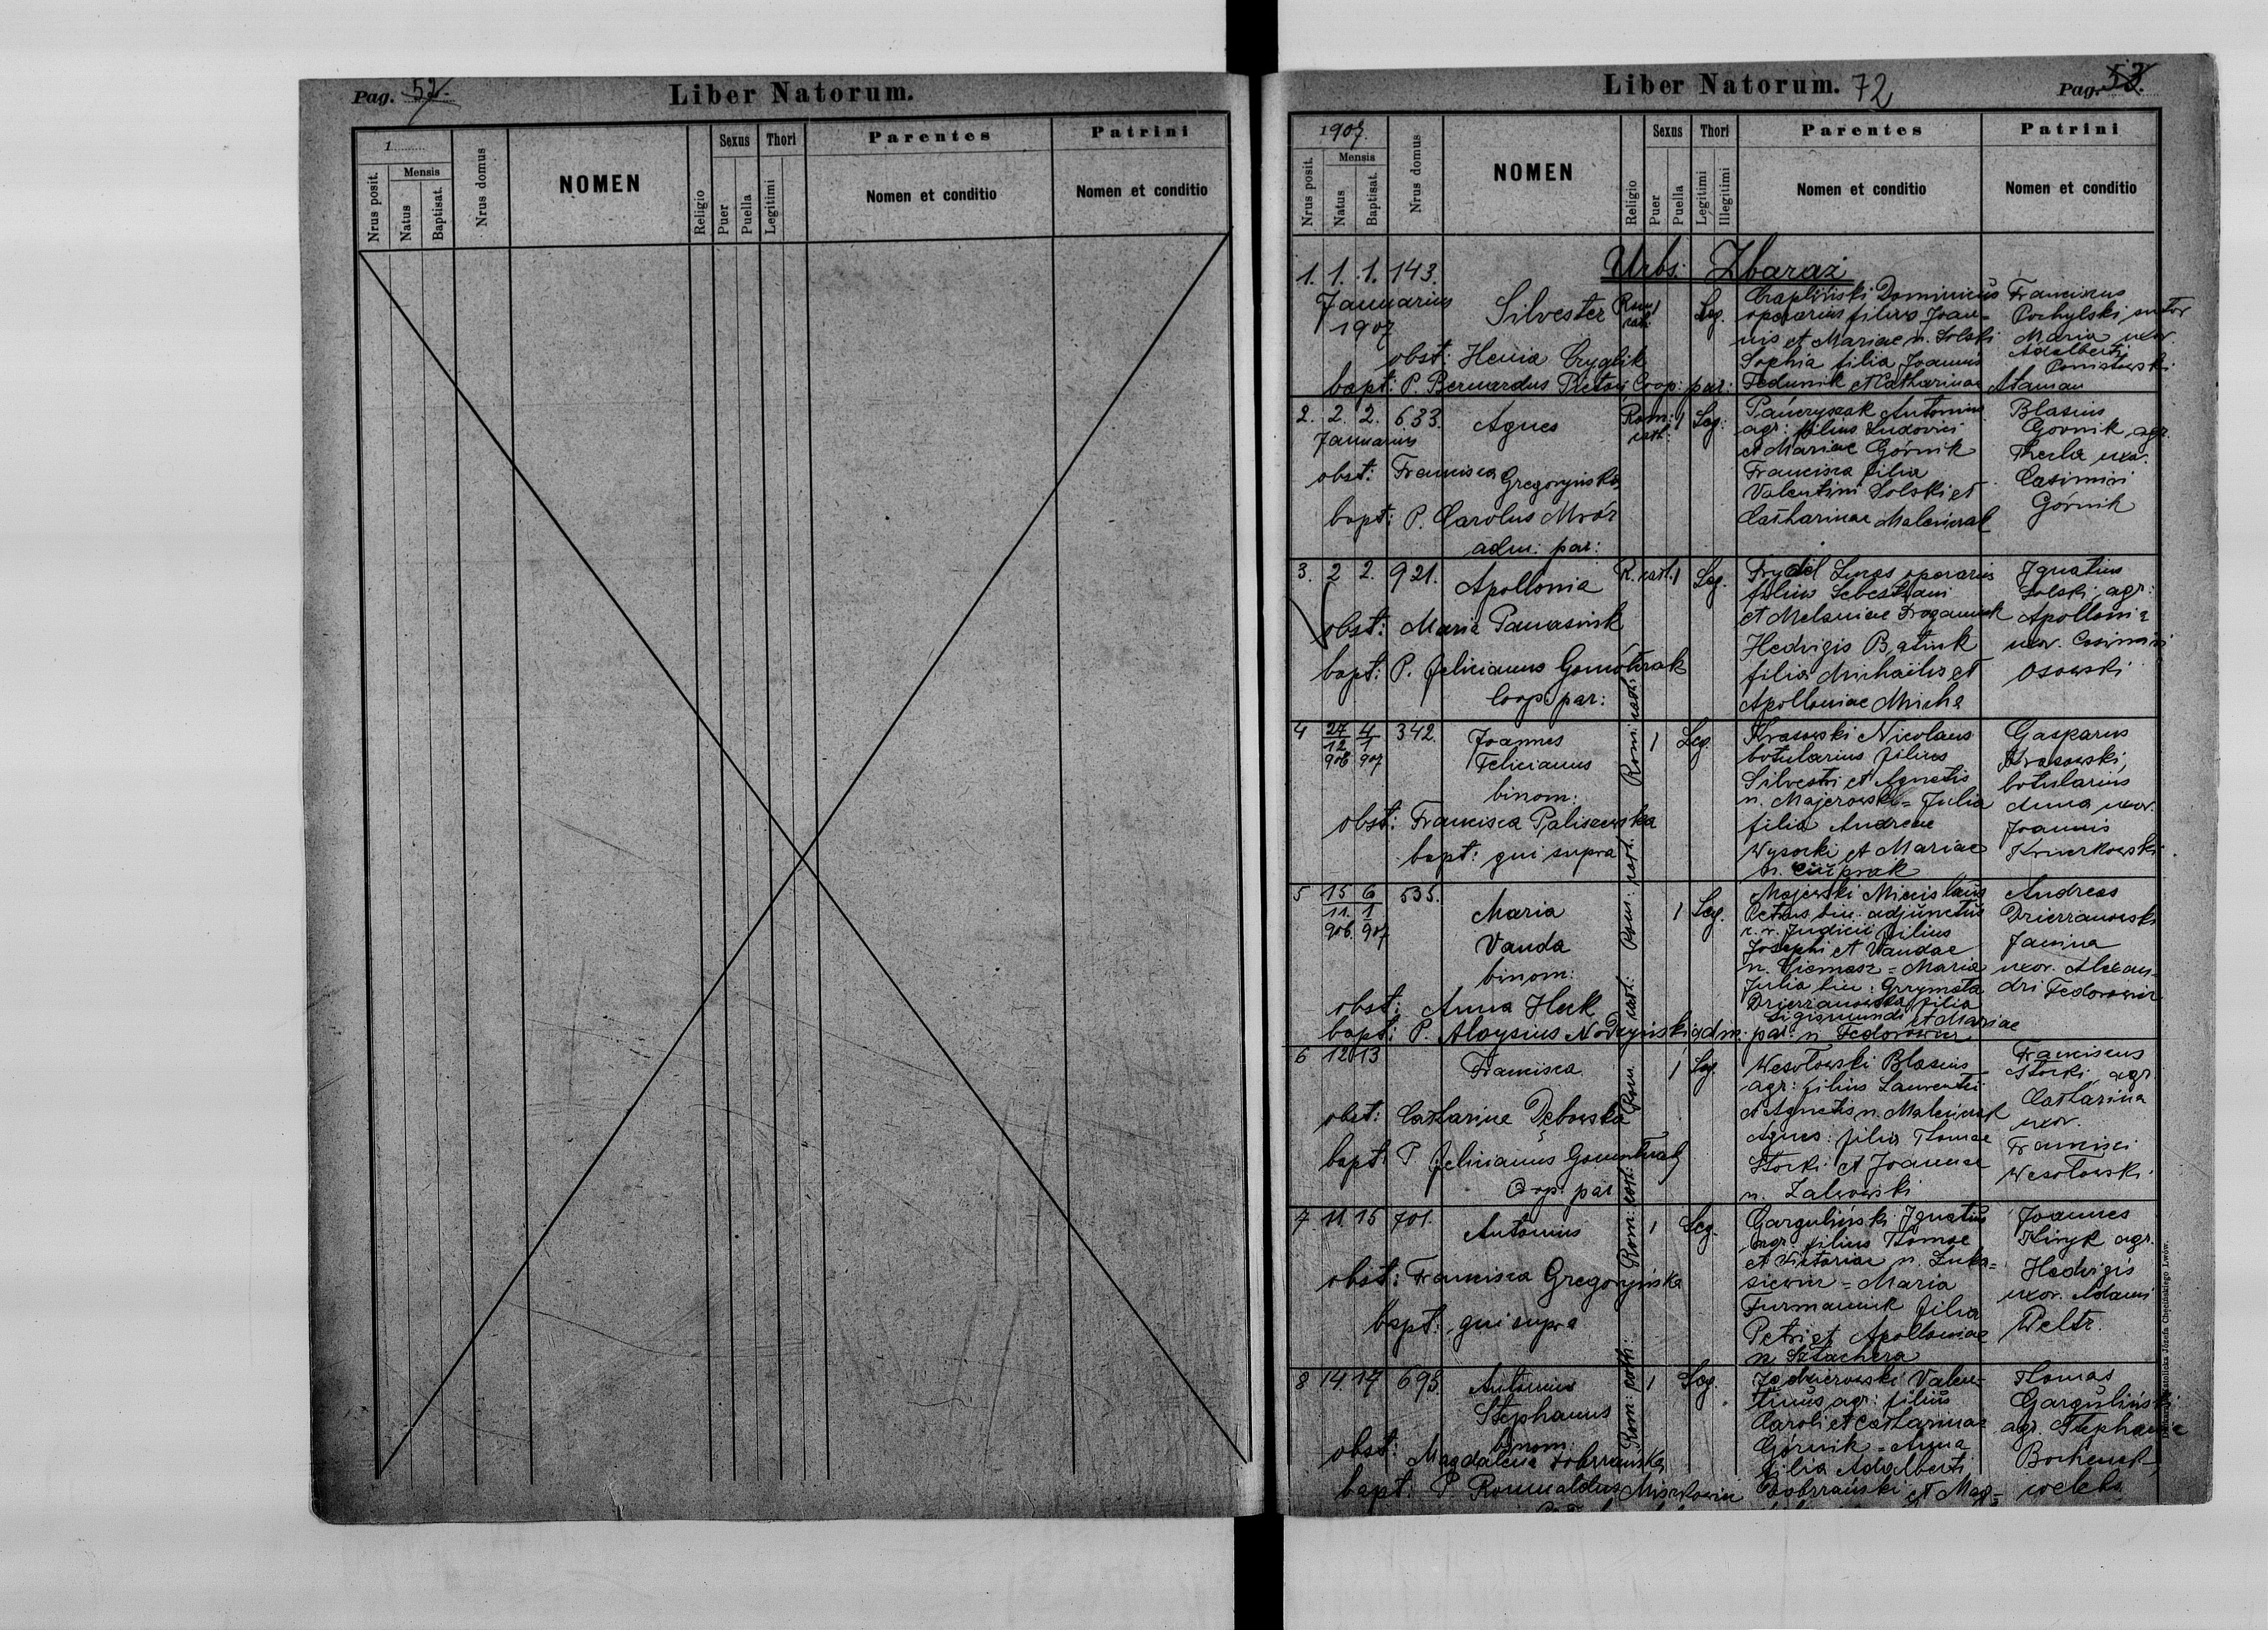 Pag. 52.
Liber Natorum.
1
Nrus posit.
Mensis
Natus
Baptisat.
Nrus domus
NOMEN
Religio
Sexus
Puer
Puella
Thori
Legitimi
Parentes
Nomen et conditio
Patrini
Nomen et conditio
Liber Natorum. 72
Pag. 53.
1907.
Nrus posit.
Mensis
Natus
Baptisat.
Nrus domus
NOMEN
Religio
Sexus
Puer
Puella
Thori
Legitimi
Illegitimi
Parentes
Nomen et conditio
Patrini
Nomen et conditio
Urbs: Zbaraż
1. 1. 1. 143.
Januarius
1907
Silvester
Rom
cath.
1
Leg.
obst: Henia
bapt: P. Bernardus Coop: par:
Czapliński Dominicus
operarius filius Joan-
nis et Mariae n. Solski
Sophia filia Joannis
Fedunik et Catharinae Ataman
Franciscus
Pochylski sutor
Maria uxor.
Adalberti
2. 2. 2. 633.
Januarius
Agnes
Rom:
cath:
1 Leg:
obst: Francisca
Gregoryńska
bapt: P. Carolus Mroz
adm: par:
Pańczyszak Antonius
agr: filius Ludovici
et Mariae Górnik
Francisca filia
Valentini Solski et
Catharinae
Blasius
Gornik, agr.
Thecla uxor.
Casimiri
Górnik
3. 2 2. 921.
Apollonia
R. cath. 1 Leg.
obst: Maria Panasiuk
bapt: P. Felicianus
Coop: par:
Frydel Lucas operarius
filius Sebestiani
et Melaniae
Hedvigis
filia Michaëlis et
Apolloniae
Ignatius
Solski, agr:
Apollonia
uxor. Casimiri
Osowski
4 27/12 906 4/1 907 342.
Joannes
Felicianus
binom:
Rom: cath:
1 Leg.
obst: Francisca Paliszewska
bapt: qui supra
Krasowski Nicolaus
botularius filius
Silvestri et Agnetis
n. Majerowski = Julia
filia Andreae
Wysocki et Mariae
n.
Gasparus
Krasowski,
botularius
Anna uxor.
Joannis
5 15/11. 906. 6/1 907 535.
Maria
Vanda
binom:
Rom: cath:
1 Leg.
obst: Anna Heck
bapt: P. Aloysius adm. par:
Majewski Miecislaus
Petrus bin. adjunctus
c. r. Judicii filius
Josephi et Vandae
n. = Maria
Julia bin: Grzymała
Dzierżanowska filia
Sigismundi et Mariae
n. Fedorowicz
Andreas
Dzierżanowski
Janina
uxor. Alexan-
dri Fedorowicz
6 12 13
Francisca
Rom: cath:
1 Leg.
obst: Catharina Dębowska
bapt: P. Felicianus
Coop: par
Wesołowski Blasius
agr: filius Laurentii
et Agnetis n.
Agnes: filia Thomae
Storki et Joannae
n. Zalewski
Franciscus
Storki, agr.
Catharina
uxor.
Francisci
Wesołowski
7 11 15 701.
Antonius
Rom: cath:
1 Leg.
obst: Francisca Gregoryńska
bapt: qui supra
Garguliński Ignatius
agr. filius Thomae
et Victoriae n. Łuka-
siewicz = Maria
Furmaniuk filia
Petri et Apolloniae
n. Sztachera
Joannes
agr.
Hedvigis
uxor. Adami
Peltz.
8 14 17 695
Antonius
Stephanus
binom:
Rom: cath:
1 Leg.
obst: Magdalena Dobrzańska
bapt: P. Romualdus
Valen-
tinus agr: filius
Caroli et Catharinae
Górnik = Anna
filia Adalberti
Dobrzański et Mag-
Thomas
Garguliński
agr. Stephania